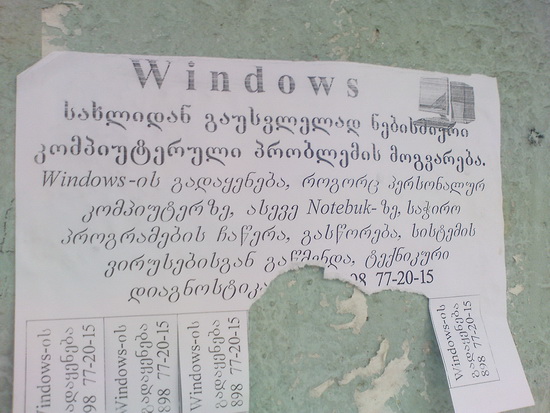 Windows
სახლიდან გაუსვლელად ნებისმიერი
კომპიუტერული პრობლემის მოგვარება.
Windows-ის გადაყენება, როგორც პერსონალურ
კომპიუტერზე, ასევე Notebuk-ზე, საჭირო
პროგრამების ჩაწერა, გასწორება, სისტემის
ვირუსებისგან გაწმენდა, ტექნიკური
დიაგნოსტიკა 98 77-20-15
Windows-ის
გადაყენება
898 77-20-15
Windows-ის
გადაყენება
898 77-20-15
Windows-ის
გადაყენება
898 77-20-15
Windows-ის
გადაყენება
898 77-20-15